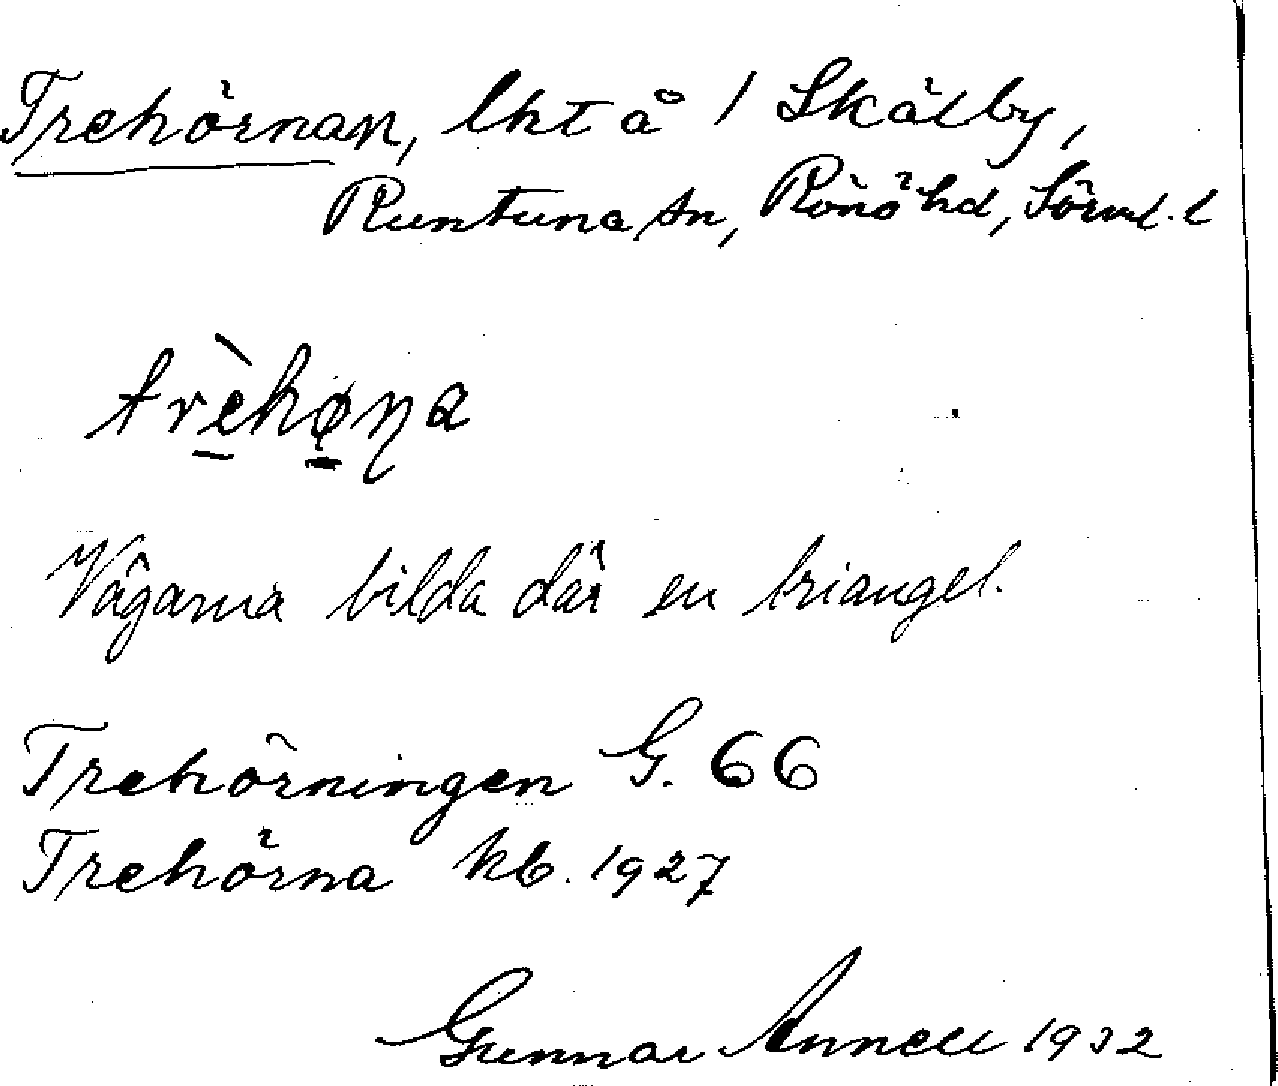 Trehörnan, lht å 1 Skälby,
Runtuna sn, Rönö hd, Sörml. l
trèhøn̥a
Vägarna bilda där en triangel.
Trehörningen G. 66
Trehörna kb. 1927
Gunnar Annell 1932